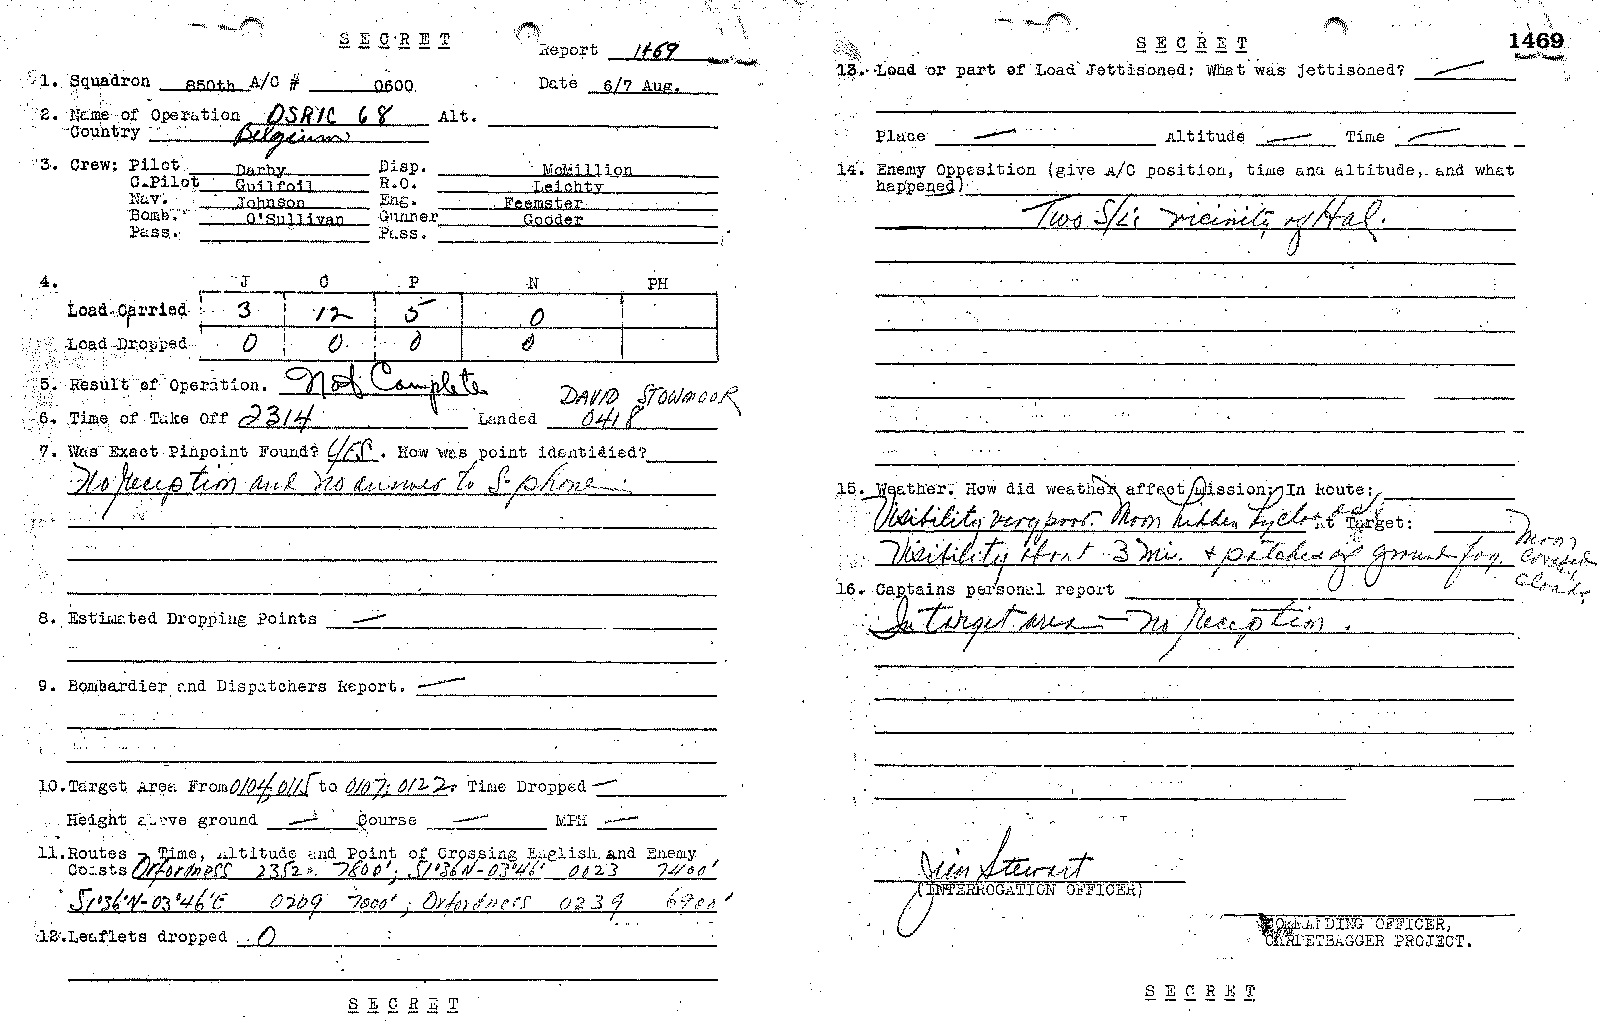 SECRET
Report 1469
1. Squadron 850th A/C # 0600 Date 6/7 Aug.
2. Name of Operation OSRIC 68 Alt.
Country Belgium
3. Crew: Pilot Darby Disp. McMillion
C.Pilot Guilfoil R.O. Leichty
Nav. Johnson Eng. Feemster
Bomb. O'Sullivan Gunner Gooder
Pass. Pass.
4. J C P N PH
Load Carried 3 12 5 0
Load Dropped 0 0 0 0
5. Result of Operation. Not Complete
DAVID STOWMOOR
6. Time of Take Off 2314 Landed 0418
7. Was Exact Pinpoint Found? YES. How was point identidied?
No reception and no answer to S-phone.
8. Estimated Dropping Points —
9. Bombardier and Dispatchers Report. —
10. Target Area From 0104, 0115 to 0107; 0122. Time Dropped —
Height above ground — Course — MPH —
11. Routes - Time, Altitude and Point of Crossing English and Enemy
Coasts Orfordness 2352 7800'; 51°36'N-03°46' 0023 7400'
51°36'N-03°46'E 0209 7000'; Orfordness 0239 6900'
12. Leaflets dropped 0
SECRET
SECRET
1469
13. Load or part of Load Jettisoned: What was jettisoned? —
Place — Altitude — Time —
14. Enemy Opposition (give A/C position, time and altitude, and what
happened)
Two S/Ls vicinity of Hal.
15. Weather. How did weather affect mission: In Route:
Visibility very poor. Moon hidden by clouds. At Target:
Visibility about 3 mi. + patches of ground fog. Moon
covered
clouds.
16. Captains personal report
In target area — no reception.
Jim Stewart
(INTERROGATION OFFICER)
COMMANDING OFFICER,
CARPETBAGGER PROJECT.
SECRET